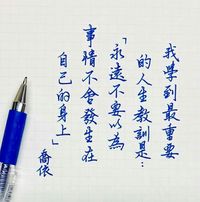 我學到最重要
的人生教訓是：
「永遠不要以為
事情不會發生在
自己的身上」
喬依